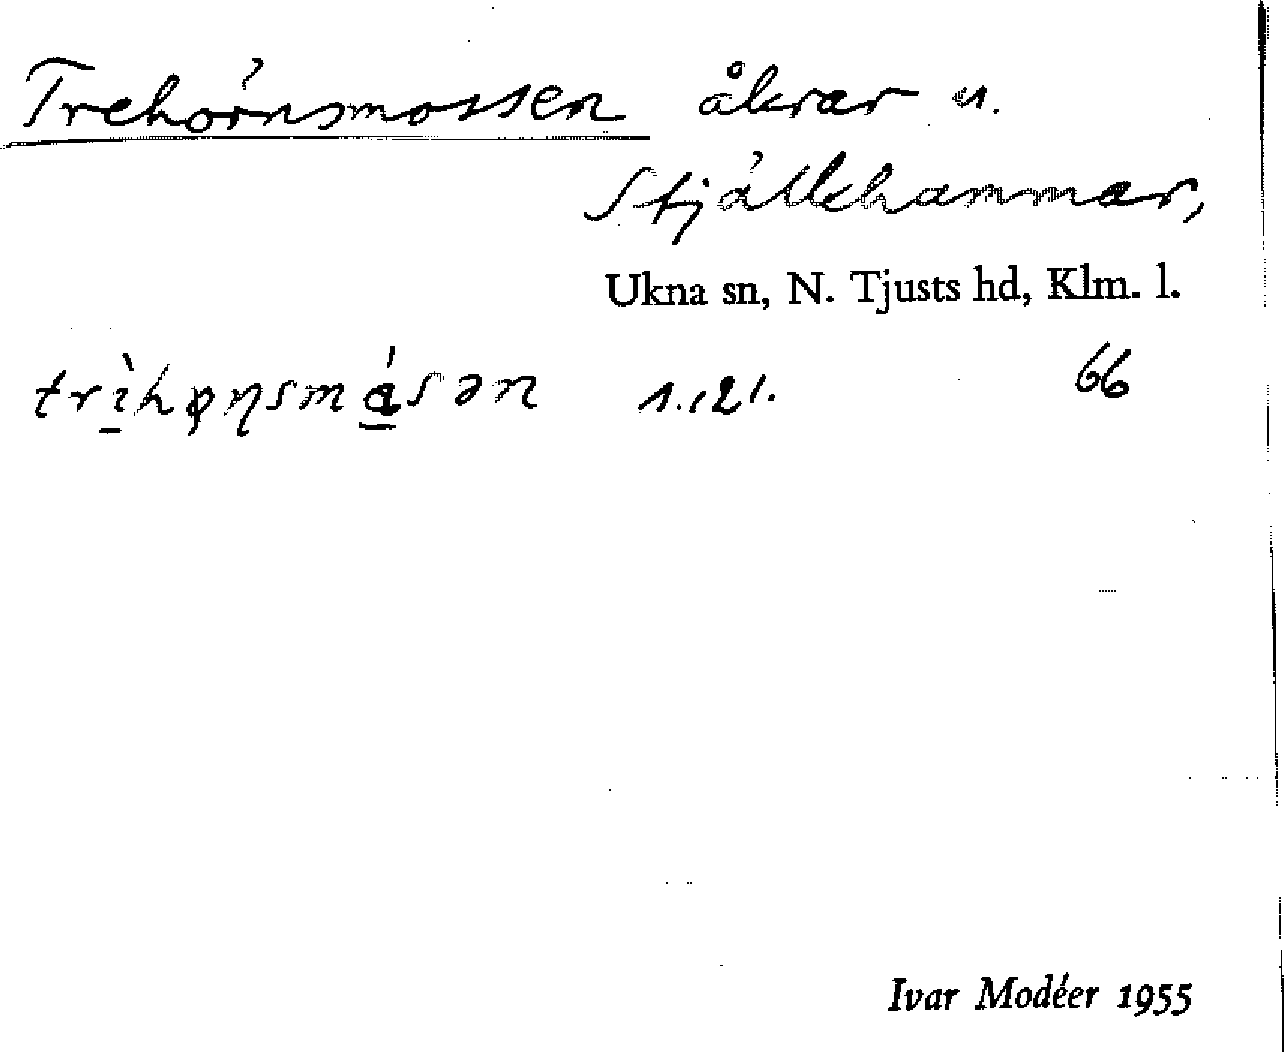 Trehörnsmossen åkrar u.
Stjälkhammar,
Ukna sn, N. Tjusts hd, Klm. l.
66
Ivar Modéer 1955